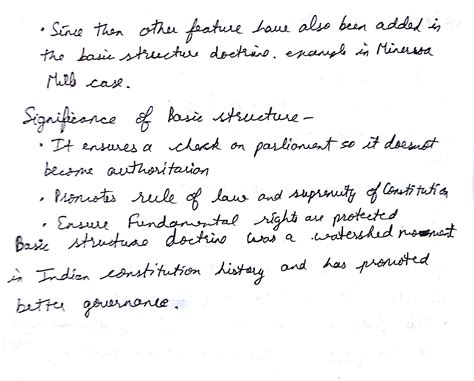 • Since then other feature have also been added in
the basic structure doctrine. example in Minerva
Mills case.
Significance of Basic structure –
• It ensures a check on parliament so it doesnot
become authoritarian
• Promotes rule of law and supremity of Constitution
• Ensure Fundamental rights are protected
Basic structure doctrine was a watershed moment
in Indian constitution history and has promoted
better governance.